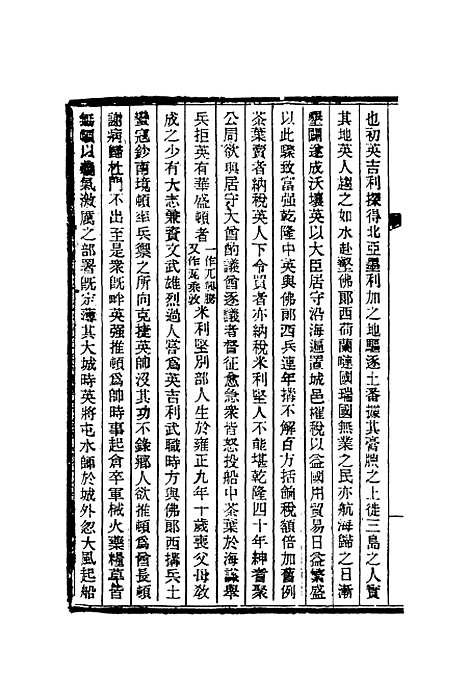 也初英吉利探得北亞墨利加之地驅逐土番據其膏腴之上徙三島之人實
其地英人趨之如水赴壑佛郎西荷蘭嗹國瑞國無業之民亦航海歸之日漸
墾闢遂成沃壤英以大臣居守沿海遍置城邑榷稅以益國用貿易日益繁盛
以此驟致富强乾隆中英與佛郎西兵連年搆不解百方括餉稅額倍加舊例
茶葉賣者納稅英人下令買者亦納稅米利堅人不能堪乾隆四十年紳耆聚
公局欲與居守大酋酌議酋逐議者督征愈急衆皆怒投船中茶葉於海議舉
兵拒英有華盛頓者一作兀興騰又作瓦乘敦米利堅別部人生於雍正九年十歲喪父母敎
成之少有大志兼資文武雄烈過人嘗爲英吉利武職時方與佛郎西搆兵土
蠻寇鈔南境頓率兵禦之所向克捷英帥沒其功不錄鄉人欲推頓爲酋長頓
謝病歸杜門不出至是衆旣畔英强推頓爲帥時事起倉卒軍械火藥糧草皆
無頓以義氣激厲之部署旣定薄其大城時英將屯水師於城外忽大風起船